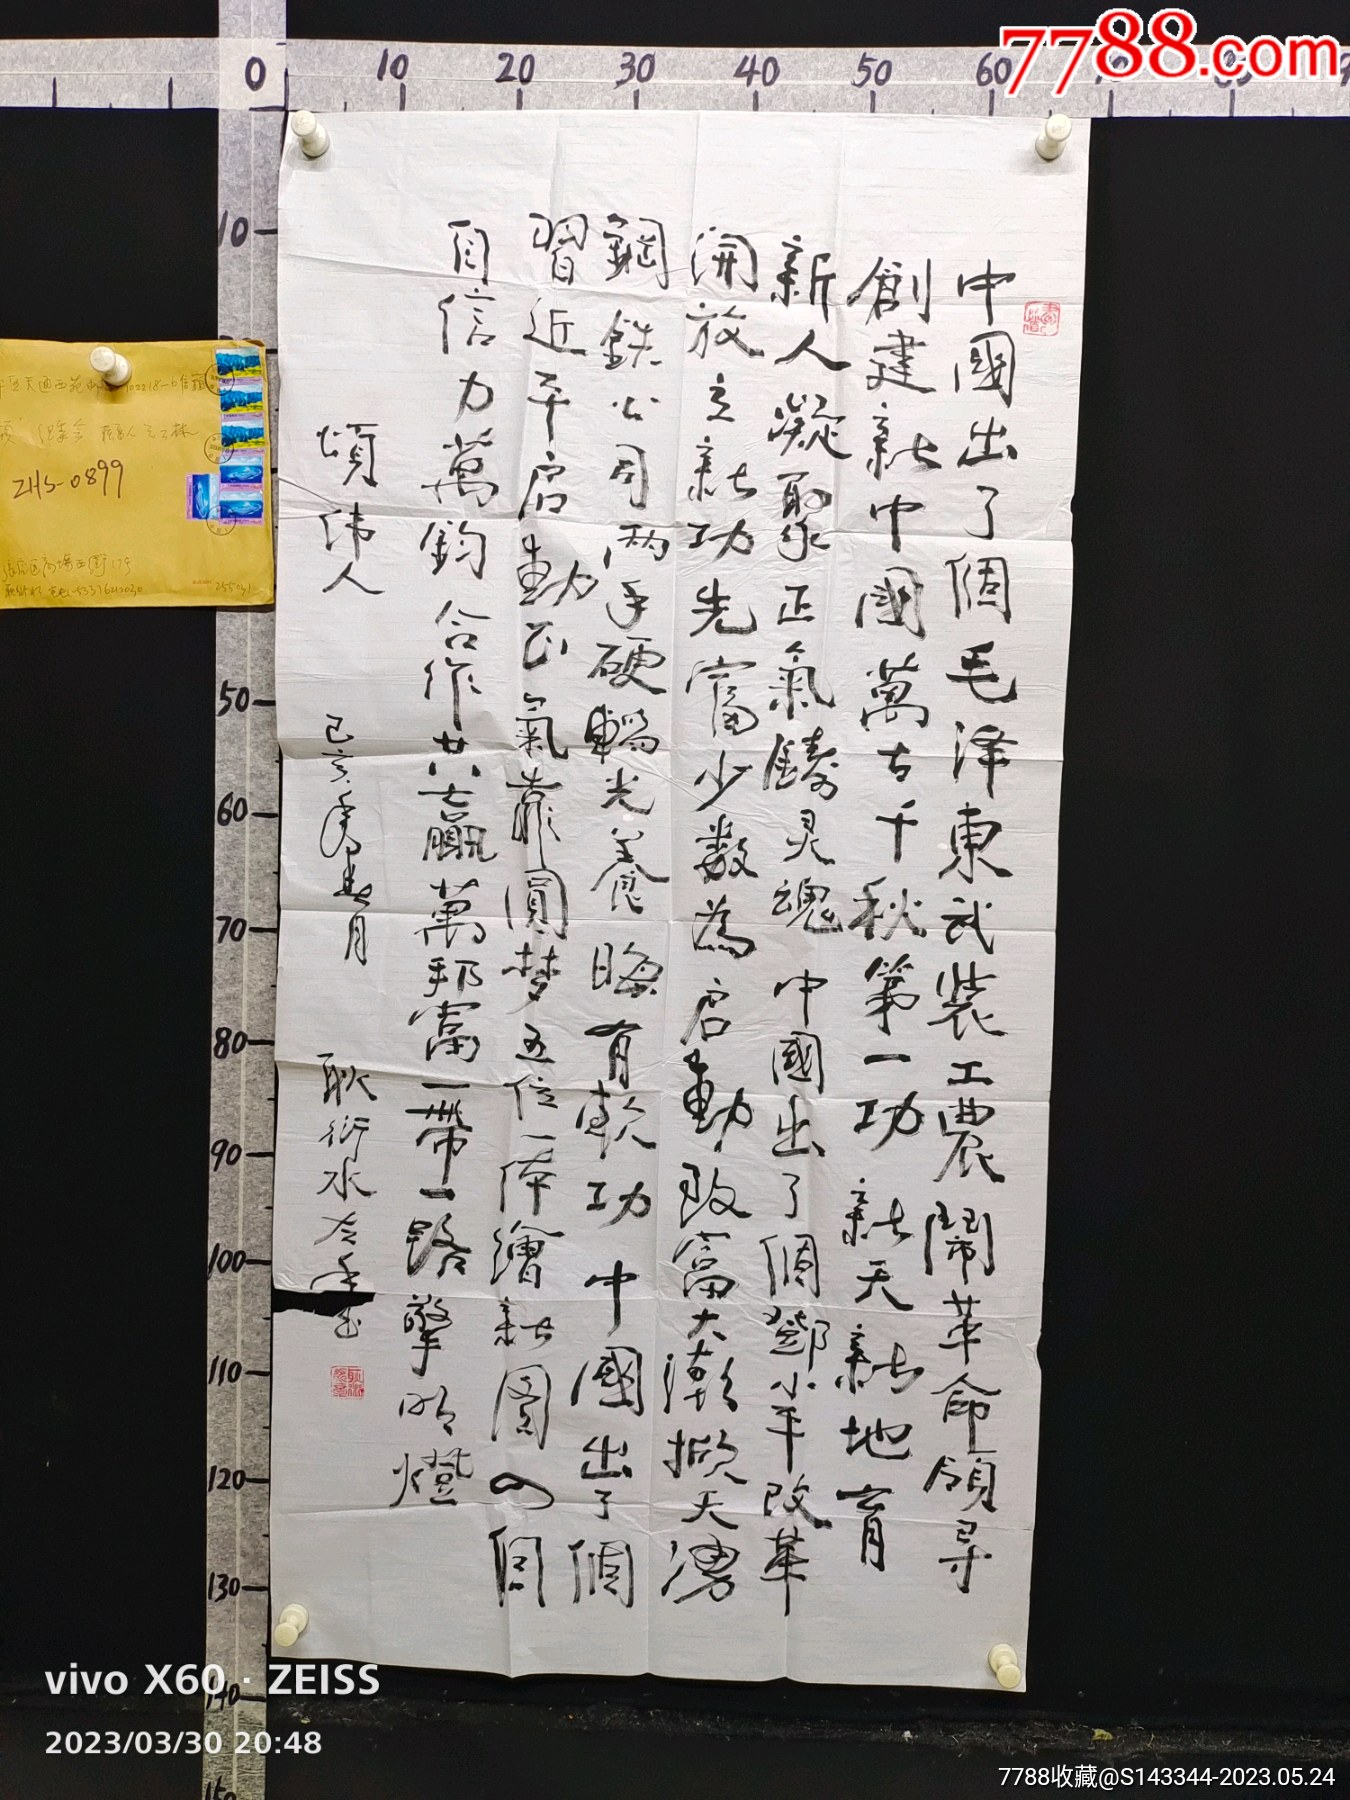 7788.com
0 10 20 30 40 50 60
10
50
60
70
80
90
100
110
120
130
140
中國出了個毛泽東武装工農鬧革命領导
創建新中國萬古千秋第一功新天新地育
新人凝聚正氣鑄灵魂中國出了個鄧小平改革
開放立新功先富少数為启動致富大潮掀天湧
鋼鉄公司两手硬韜光養晦有軟功中國出了個
習近平启動正氣靠圓梦五位一体繪新图四個
自信力萬鈞合作共赢萬邦富一帶一路擎明燈
頌伟人
己亥年春月
耿衍水
ZHS-0899
255031
vivo X60 · ZEISS
2023/03/30 20:48
7788收藏@S143344-2023.05.24